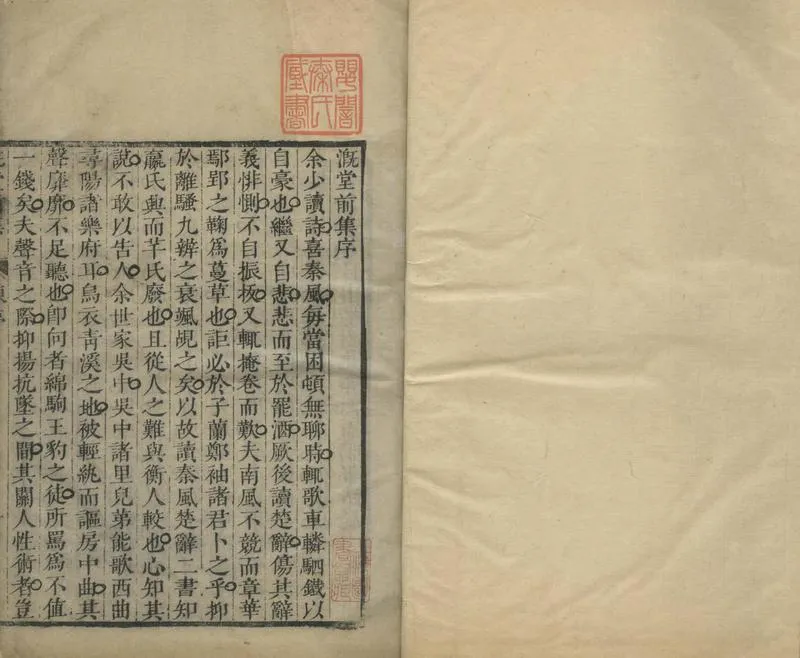 溉堂前集序
余少讀詩喜秦風每當困頓無聊時輒歌車轔駟鐵以
自豪也繼又自悲悲而至於罷酒厥後讀楚辭傷其辭
義悱惻不自振扳又輒掩卷而歎夫南風不競而章華
鄢郢之鞠為蔓草也詎必於子蘭鄭袖諸君卜之乎抑
於離騷九辨之哀颯覘之矣以故讀秦風楚辭二書知
嬴氏興而芊氏廢也且從人之難與衡人較也心知其
說不敢以告人余世家吳中吳中諸里兒第能歌西曲
尋陽諸樂府耳烏衣青溪之地被輕紈而謳房中曲其
聲靡靡不足聽也卽向者綿駒王豹之徒所罵為不值
一錢矣夫聲音之際抑揚抗墜之間其關人性術者豈
秦氏
書